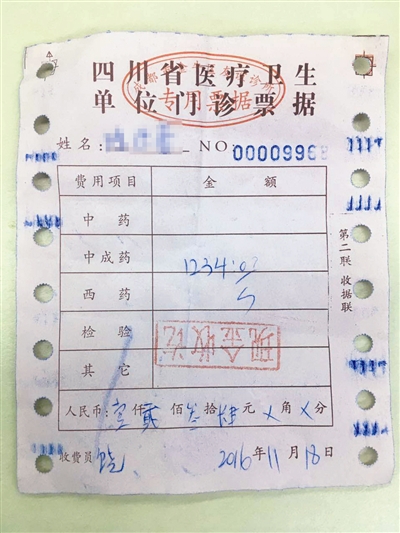 四川省医疗卫生
单位门诊票据
专用票据
姓名: NO: 00009968
费用项目 金额
中药
中成药 1234:
西药
检验
其它
现金收讫
第二联 收据联
人民币: 壹仟贰佰叁拾肆元 X 角 X 分
收费员 2016年11月18日